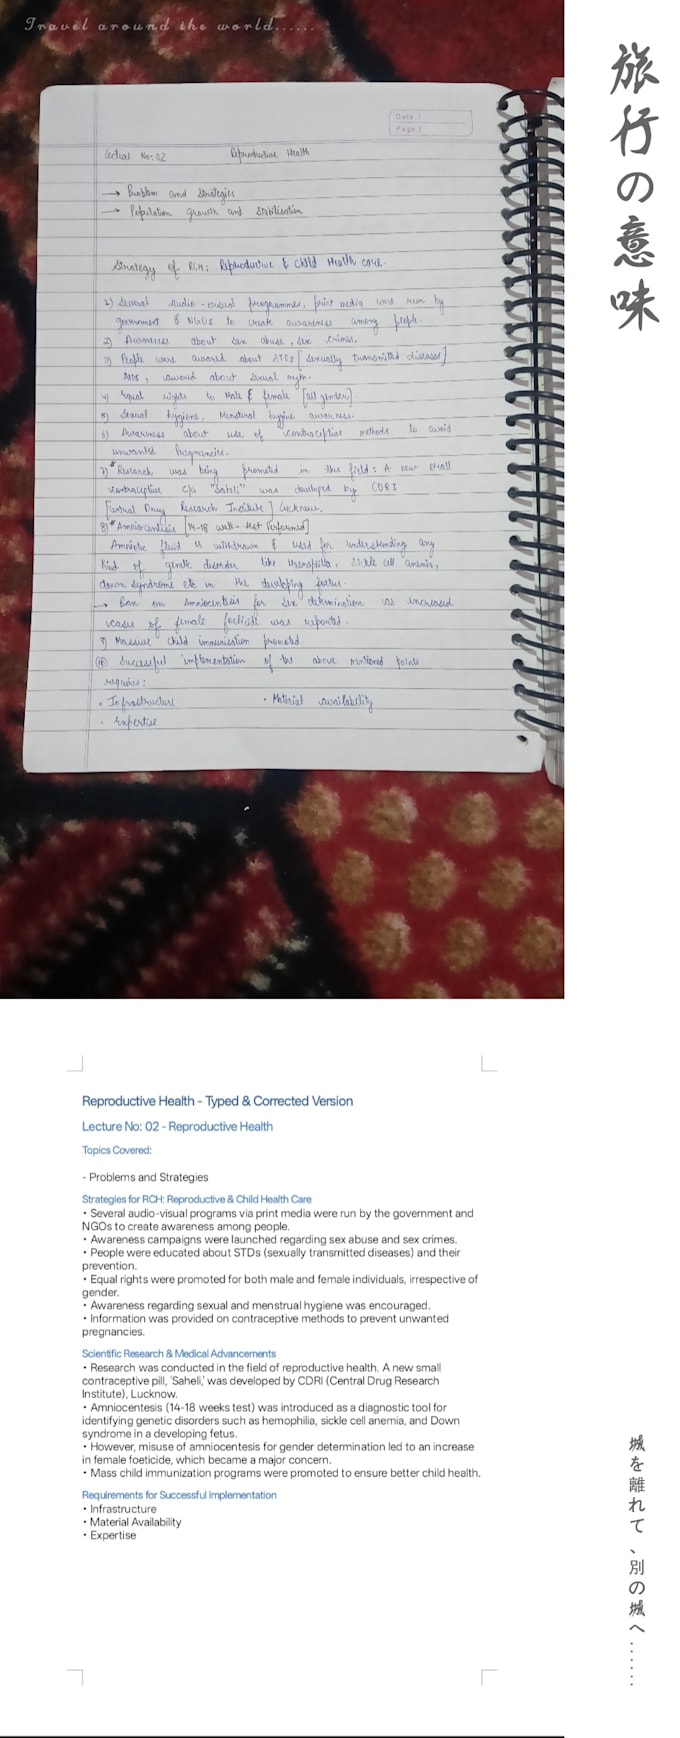 Travel around the world......
旅行の意味
Date :
Page :
Lecture No: 02 Reproductive Health
→ Problem and Strategies
→ Population growth and Stabilisation
Strategy of RCH: Reproductive & Child Health care.
1) Several audio-visual programmes, print media were run by
government & NGOs to create awareness among people.
2) Awareness about sex abuse, sex crimes.
3) People were awared about STDs [sexually transmitted diseases]
AIDS, awared about sexual myth.
4) Equal rights to Male & female [all gender]
5) Sexual hygiene, Menstrual hygine awareness.
6) Awareness about use of contraceptive methods to avoid
unwanted Pregnancies.
7)* Research was being promoted in this field: A new
contraceptive c/a "Saheli" was developed by CDRI
Drug Research Institute] Lucknow.
8)* Amniocentesis [14-18 week - test Performed]
Amniotic fluid is withdrawn & used for understanding any
kind of genetic disorder like Sickle cell
down syndrome etc in the developing foetus.
→ Ban on Amniocentesis for Sex determination as increased
cases of female was reported.
9) Massive child immunisation promoted
⑩ Successful implementation of the above mentioned points
requires:
• Infrastructure • Material availability
• Expertise
Reproductive Health - Typed & Corrected Version
Lecture No: 02 - Reproductive Health
Topics Covered:
- Problems and Strategies
Strategies for RCH: Reproductive & Child Health Care
• Several audio-visual programs via print media were run by the government and
NGOs to create awareness among people.
• Awareness campaigns were launched regarding sex abuse and sex crimes.
• People were educated about STDs (sexually transmitted diseases) and their
prevention.
• Equal rights were promoted for both male and female individuals, irrespective of
gender.
• Awareness regarding sexual and menstrual hygiene was encouraged.
• Information was provided on contraceptive methods to prevent unwanted
pregnancies.
Scientific Research & Medical Advancements
• Research was conducted in the field of reproductive health. A new small
contraceptive pill, 'Saheli,' was developed by CDRI (Central Drug Research
Institute), Lucknow.
• Amniocentesis (14-18 weeks test) was introduced as a diagnostic tool for
identifying genetic disorders such as hemophilia, sickle cell anemia, and Down
syndrome in a developing fetus.
• However, misuse of amniocentesis for gender determination led to an increase
in female foeticide, which became a major concern.
• Mass child immunization programs were promoted to ensure better child health.
Requirements for Successful Implementation
• Infrastructure
• Material Availability
• Expertise
城を離れて、別の城へ......